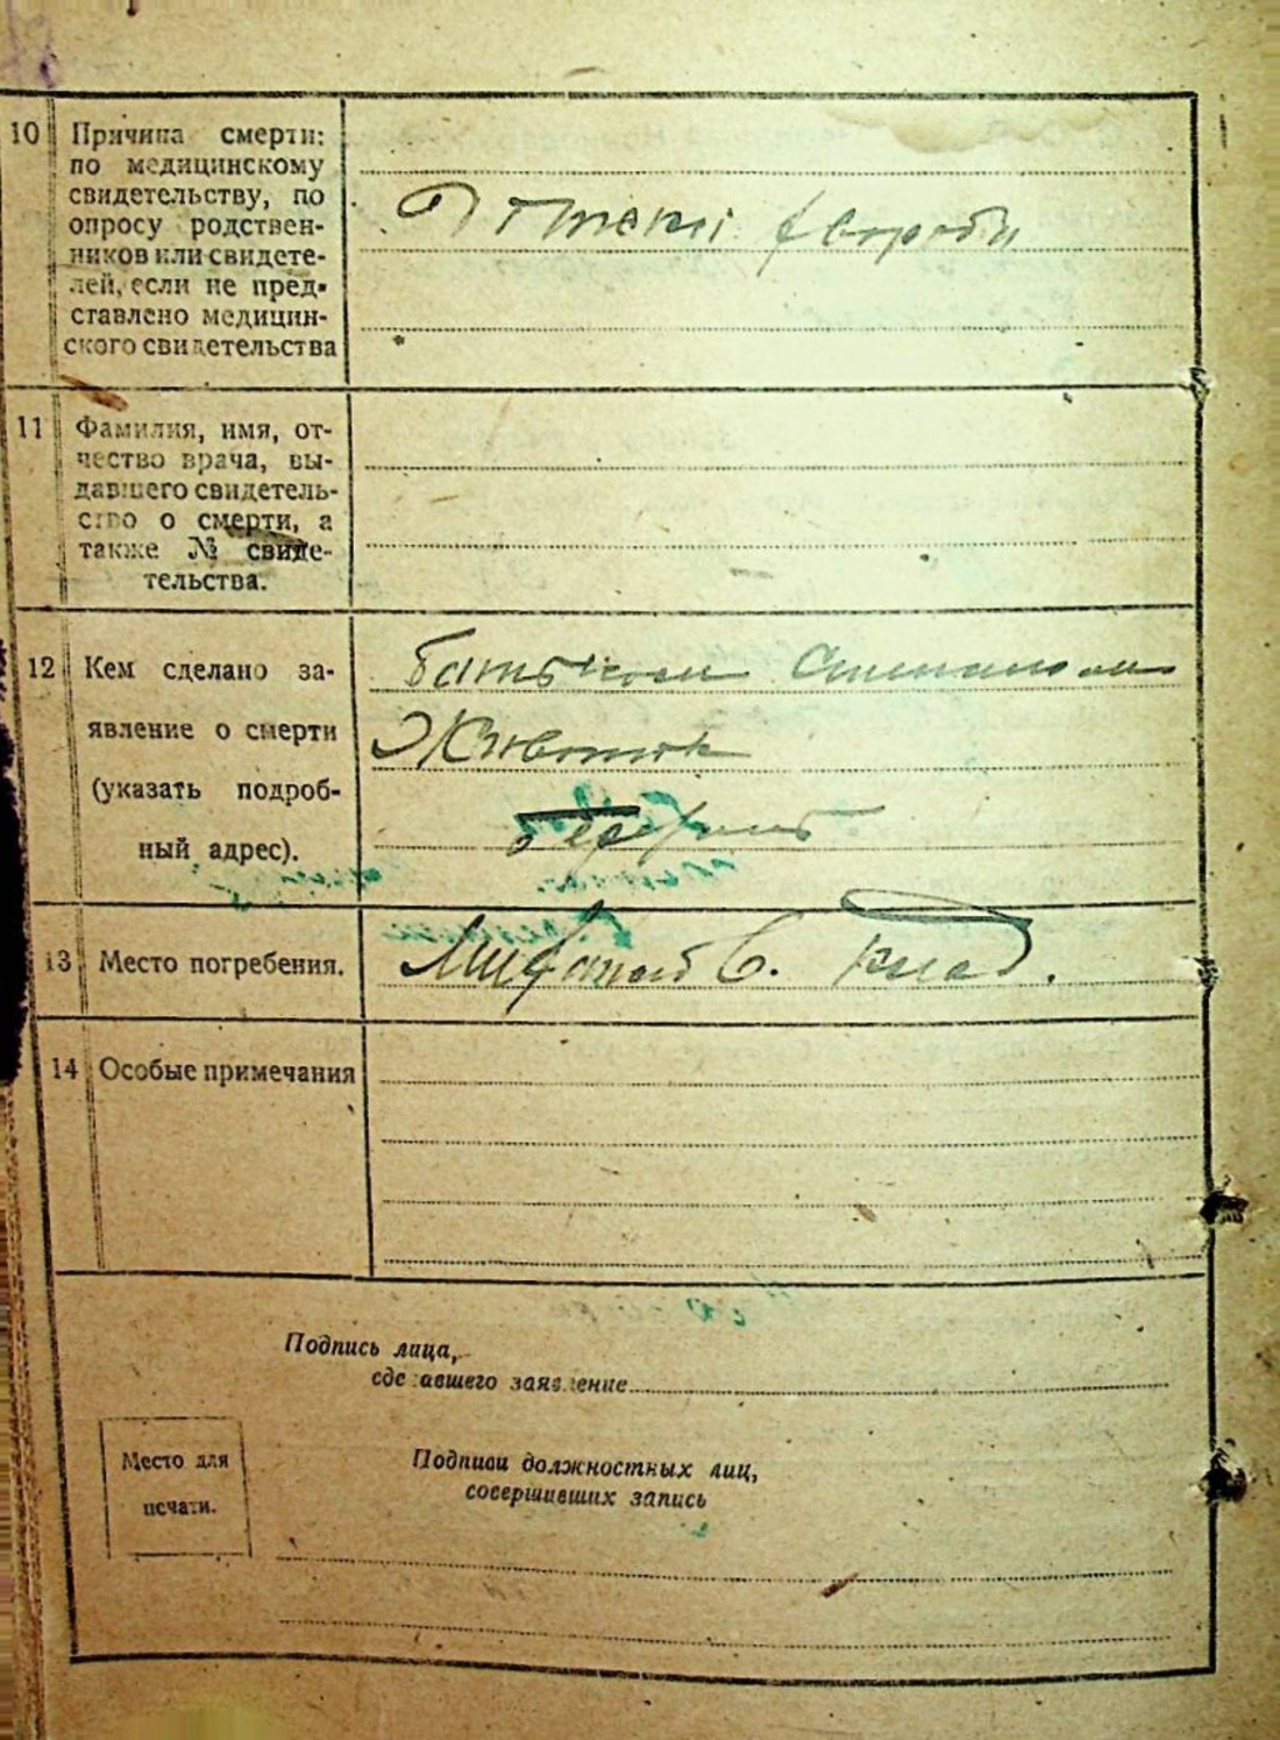 10
Причина смерти:
по медицинскому
свидетельству, по
опросу родствен-
ников или свидете-
лей, если не пред-
ставлено медицин-
ского свидетельства
11
Фамилия, имя, от-
чество врача, вы-
давшего свидетель-
ство о смерти, а
также № свиде-
тельства.
12
Кем сделано за-
явление о смерти
(указать подроб-
ный адрес).
Батьком
13
Место погребения.
клад.
14
Особые примечания
Подпись лица,
сделавшего заявление
Место для
печати.
Подписи должностных лиц,
совершивших запись